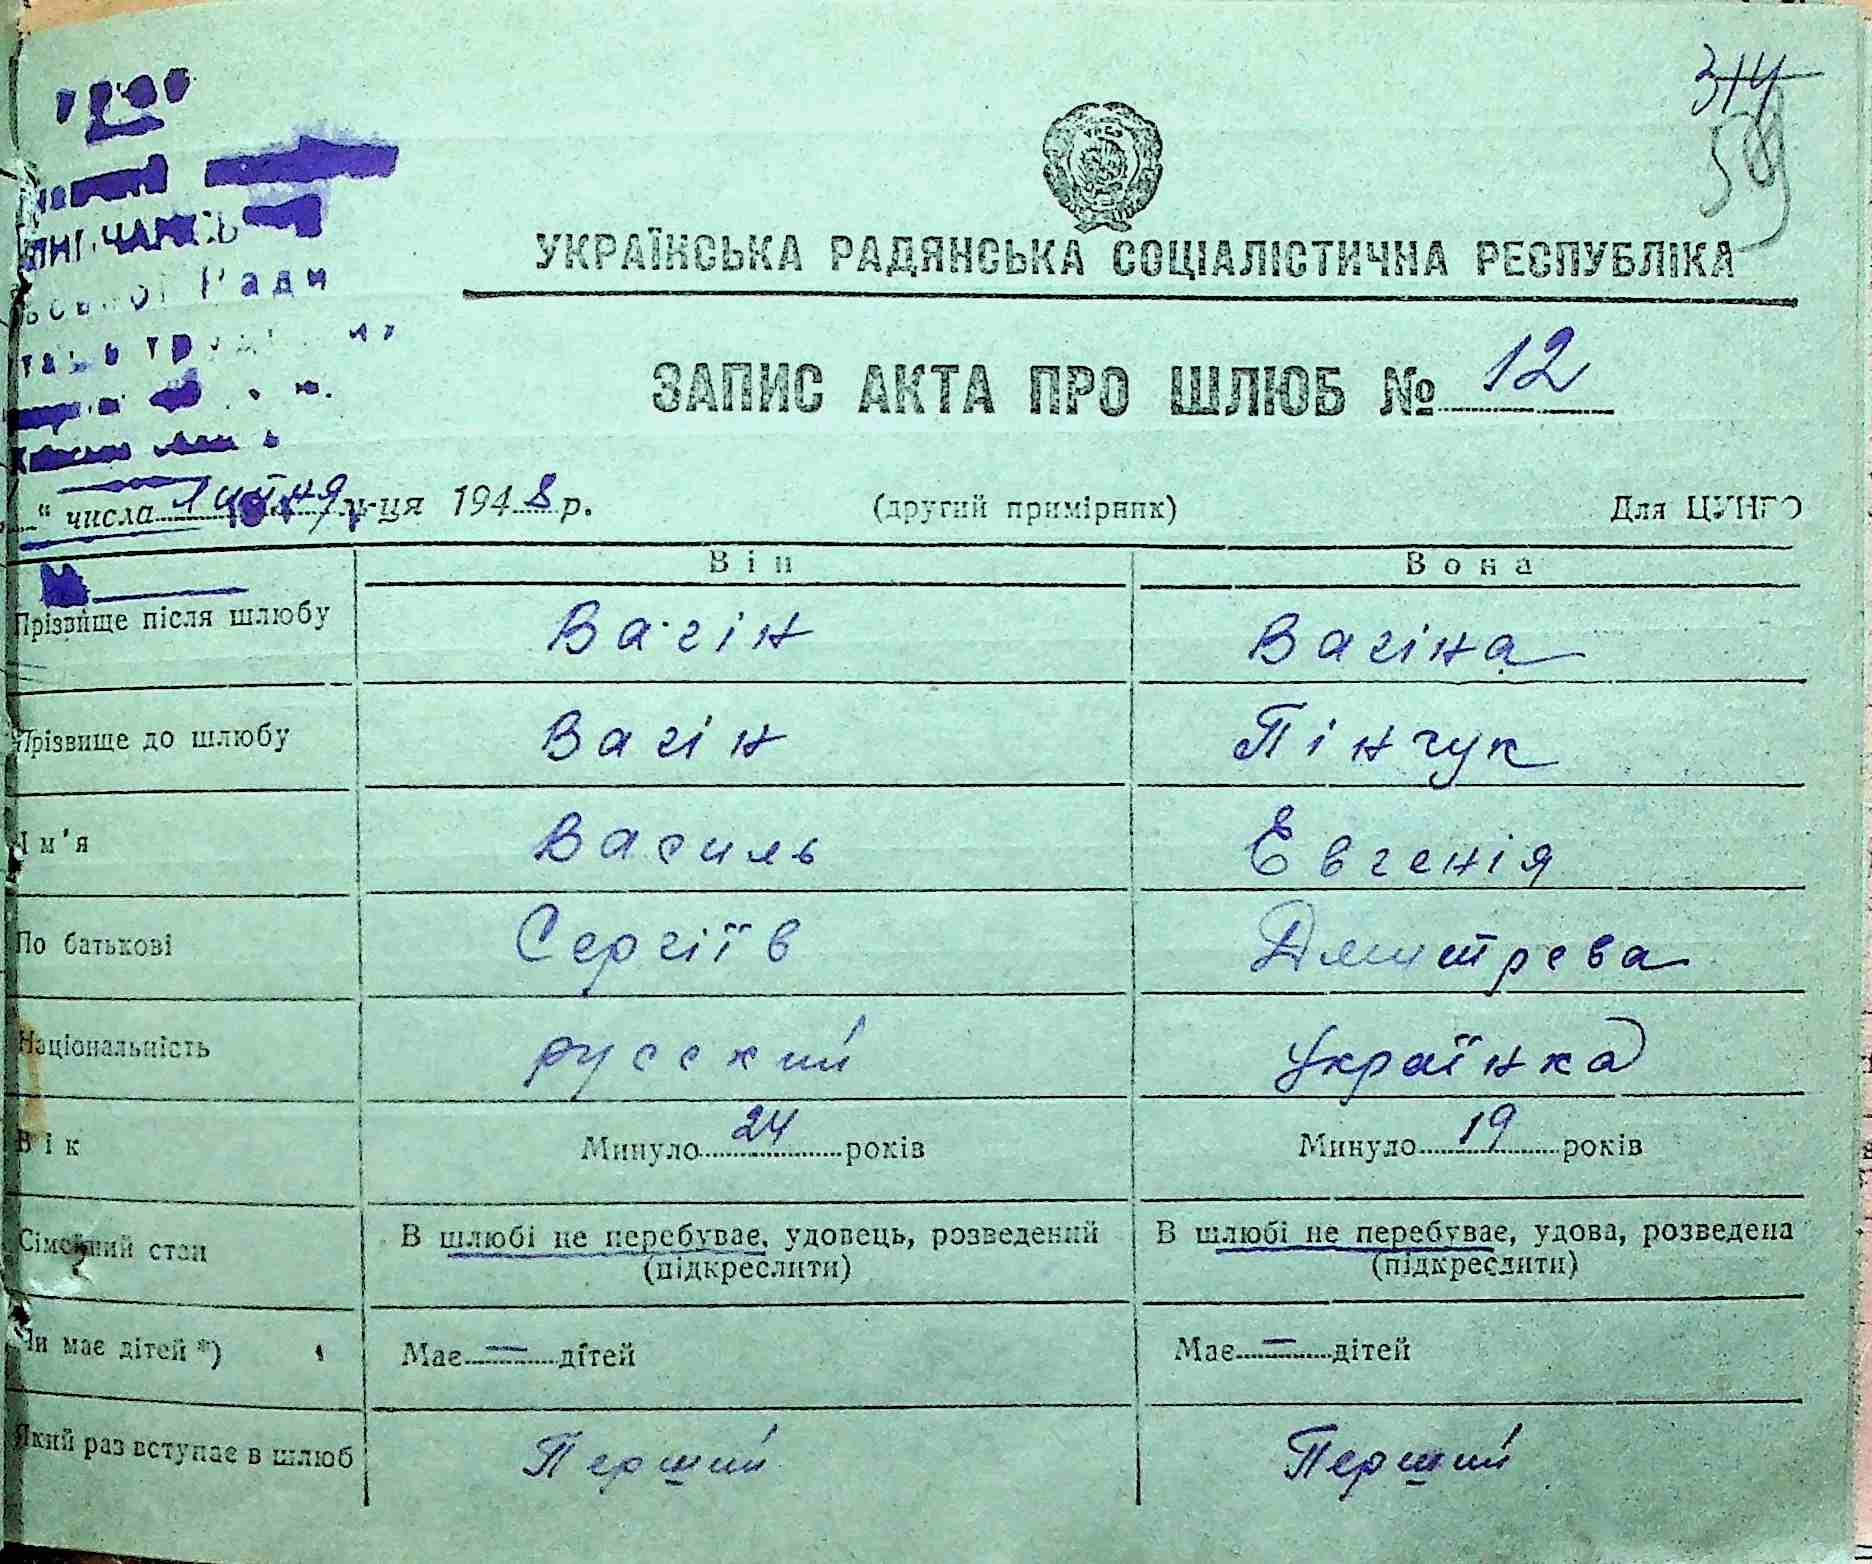 314
59
УКРАЇНСЬКА РАДЯНСЬКА СОЦІАЛІСТИЧНА РЕСПУБЛІКА
Ради
ЗАПИС АКТА ПРО ШЛЮБ № 12
“ числа липня м-ця 1948 р. (другий примірник) Для ЦУНГО
Він Вона
Прізвище після шлюбу Вагін Вагіна
Прізвище до шлюбу Вагін Пінчук
Ім'я Василь Евгенія
По батькові Сергіїв Дмитрева
Національність русский українка
Вік Минуло 24 років Минуло 19 років
Сімейний стан В шлюбі не перебуває, удовець, розведений В шлюбі не перебуває, удова, розведена
(підкреслити) (підкреслити)
Чи має дітей *) Має — дітей Має — дітей
Який раз вступає в шлюб Перший Перший